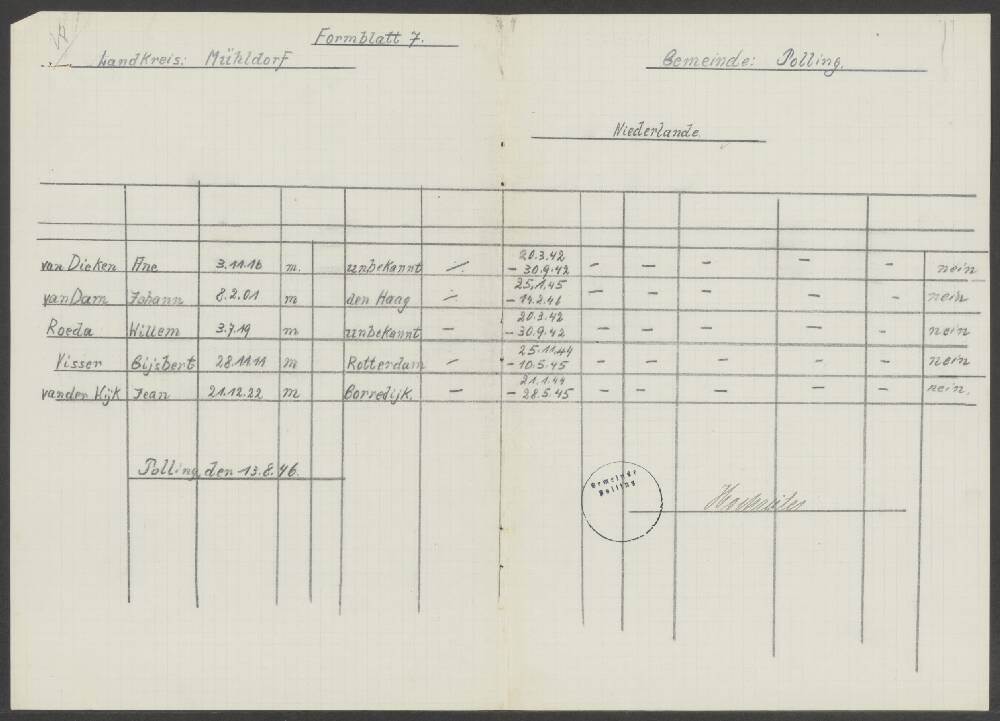 Formblatt 7.
Landkreis: Mühldorf
Gemeinde: Polling.
Niederlande.
van Dieken Ane 3.11.16 m. unbekannt ⁒ 20.3.42 - 30.9.42 - - - - - nein
van Dam Johann 8.2.01 m den Haag ⁒ 25.1.45 - 14.2.46 - - - - - nein
Roeda Willem 3.7.19 m unbekannt - 20.3.42 - 30.9.42 - - - - - nein
Visser Gijsbert 28.11.11 m Rotterdam - 25.11.44 - 10.5.45 - - - - - nein
van der Wijk Jean 21.12.22 m Borredijk. - 21.1.44 - 28.5.45 - - - - - nein.
Polling, den 13.8.46.
Gemeinde
Polling